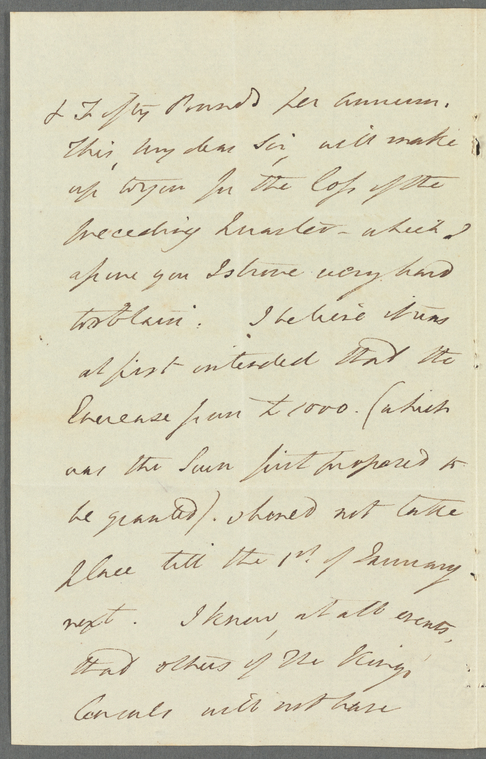 & Fifty Pounds per annum.
This, my dear Sir, will make
up to you for the loss of the
preceding Quarter – which I
assure you I strove very hard
to obtain. I believe it was
at first intended that the
Encrease from £1000. (which
was the Sum first proposed to
be granted). should not take
place till the 1st. of January
next. I know, at all events,
that others of the Kings
Consuls will not have